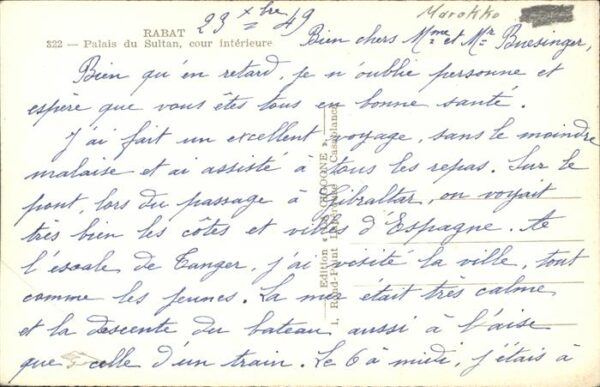 Marokko
23 xbre 49
RABAT
322 — Palais du Sultan, cour intérieure
Bien chers Mme et Mr Buesinger,
Bien qu'en retard, je n'oublie personne et
espère que vous êtes tous en bonne santé.
J'ai fait un excellent voyage, sans le moindre
malaise et ai assisté à tous les repas. Sur le
pont, lors du passage à Gibraltar, on voyait
très bien les côtes et villes d'Espagne. A
l'escale de Tanger, j'ai visité la ville, tout
comme les jeunes. La mer était très calme
et la descente du bateau aussi à l'aise
que celle d'un train. Le 6 à midi, j'étais à
Edition « LA CIGOGNE »
1, Rond-Point Casablanca